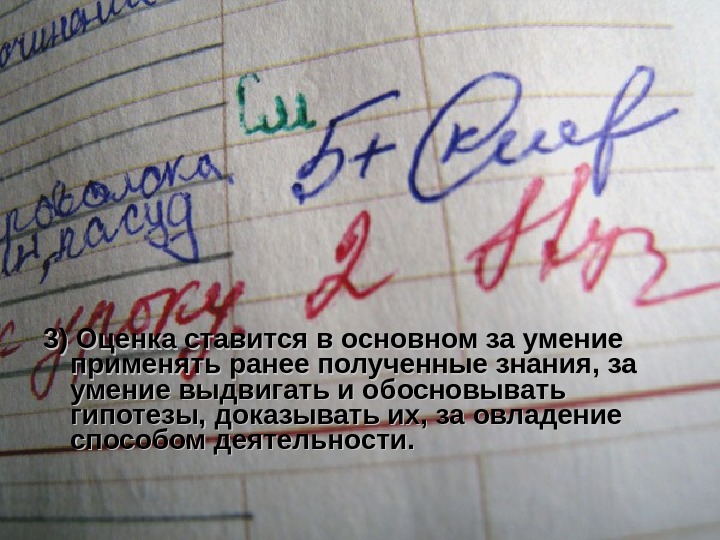 очинени
См
5+
роволока
н, пасуд
2
к уроку.
3) Оценка ставится в основном за умение
применять ранее полученные знания, за
умение выдвигать и обосновывать
гипотезы, доказывать их, за овладение
способом деятельности.